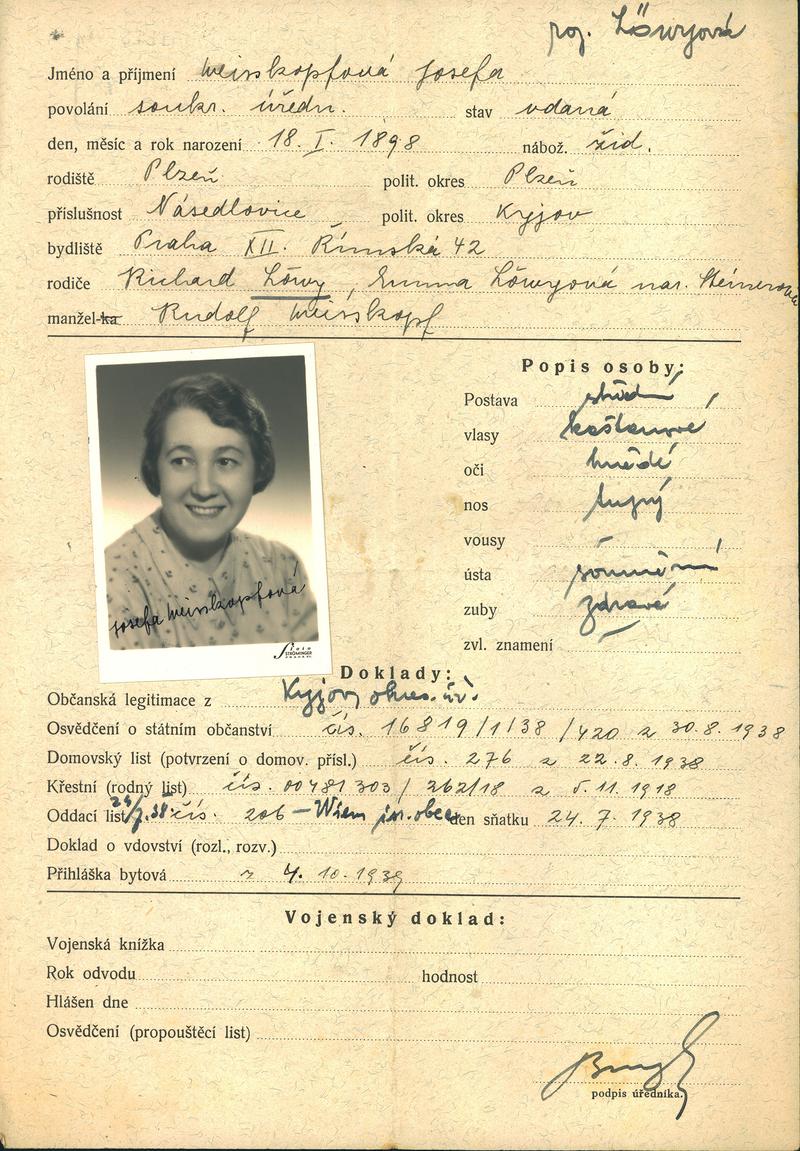 roz. Löwyová
Jméno a příjmení Weisskopfová Josefa
povolání soukr. úředn. stav vdaná
den, měsíc a rok narození 18. I. 1898 nábož. žid.
rodiště Plzeň polit. okres Plzeň
příslušnost Násedlovice polit. okres Kyjov
bydliště Praha XII. Římská 42
rodiče Richard Löwy, Emma Löwyová nar. Steinerová
manžel-ka Rudolf Weisskopf
Popis osoby:
Postava střední
vlasy kaštanové
oči hnědé
nos tupý
vousy
ústa souměrná
zuby zdravé
zvl. znamení
Josefa Weisskopfová
Foto
STRÖMINGER
Doklady:
Občanská legitimace z Kyjov, okres. úř.
Osvědčení o státním občanství čís. 16819/1/38/420 z 30.8.1938
Domovský list (potvrzení o domov. přísl.) čís. 276 z 22.8.1938
Křestní (rodný list) čís. 00481303/262/18 z 5.11.1918
Oddací list 24/7.38 čís. 206 – Wien isr. obec den sňatku 24. 7. 1938
Doklad o vdovství (rozl., rozv.)
Přihláška bytová z 4. 10. 1939
Vojenský doklad:
Vojenská knížka
Rok odvodu hodnost
Hlášen dne
Osvědčení (propouštěcí list)
podpis úředníka.